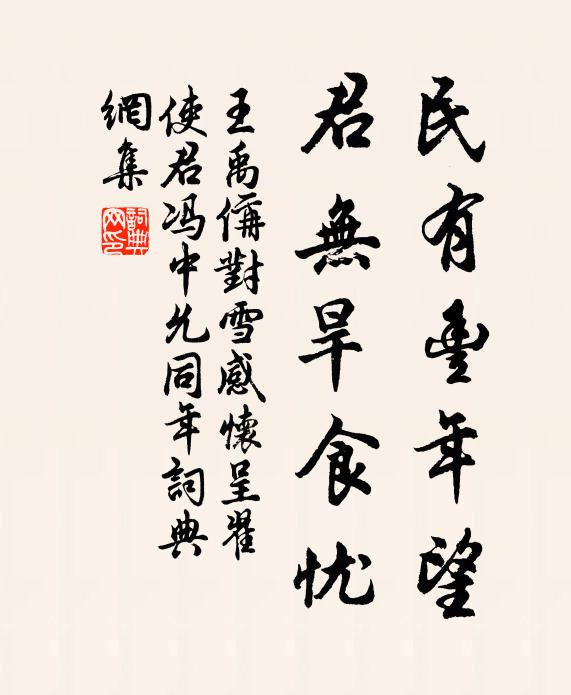 民有豐年望
君無旱食忧
王禹偁對雪感懷呈翟
使君冯中允同年詞典
網集
詞典网印